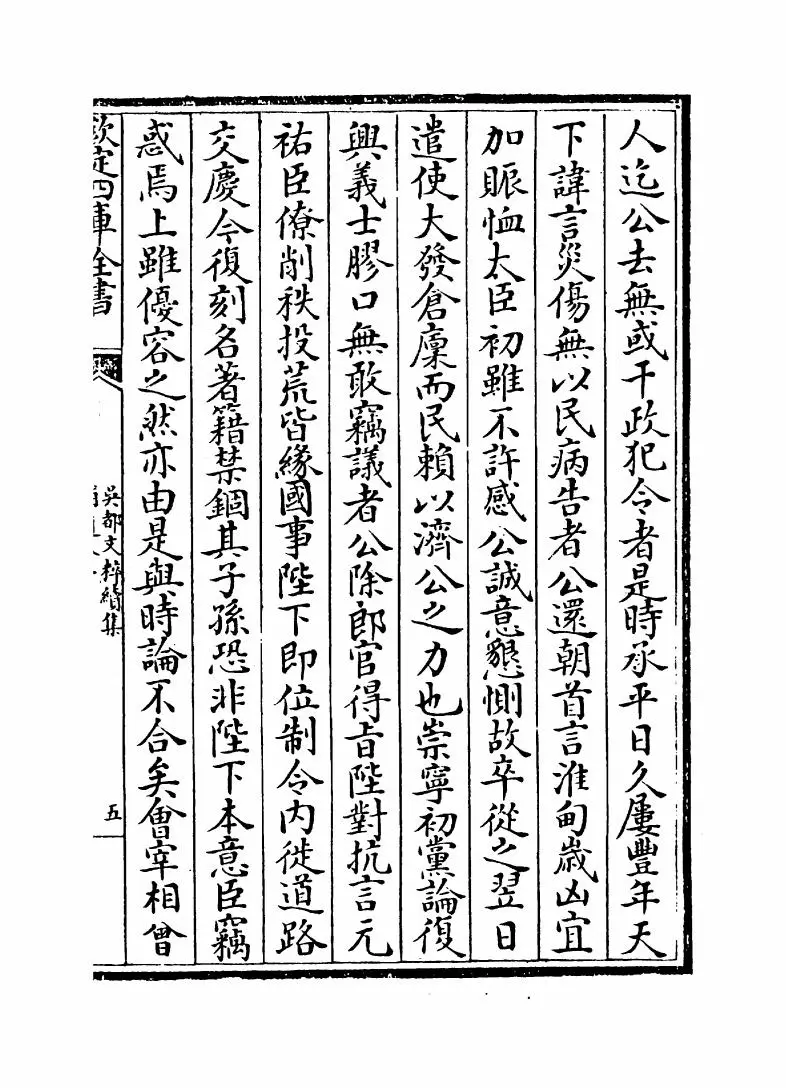 人迄公去無或干政犯令者是時承平日久屢豐年天
下諱言災傷無以民病告者公還朝首言淮甸歲凶宜
加賑恤太臣初雖不許感公誠意懇惻故卒從之翌日
遣使大發倉廩而民賴以濟公之力也崇寧初黨論復
興義士膠口無敢竊議者公除郎官得旨陛對抗言元
祐臣僚削秩投荒皆緣國事陛下即位制令内徙道路
交慶今復刻名著籍禁錮其子孫恐非陛下本意臣竊
惑焉上雖優容之然亦由是與時論不合矣會宰相曾
欽定四庫全書
吳都文粹續集
五